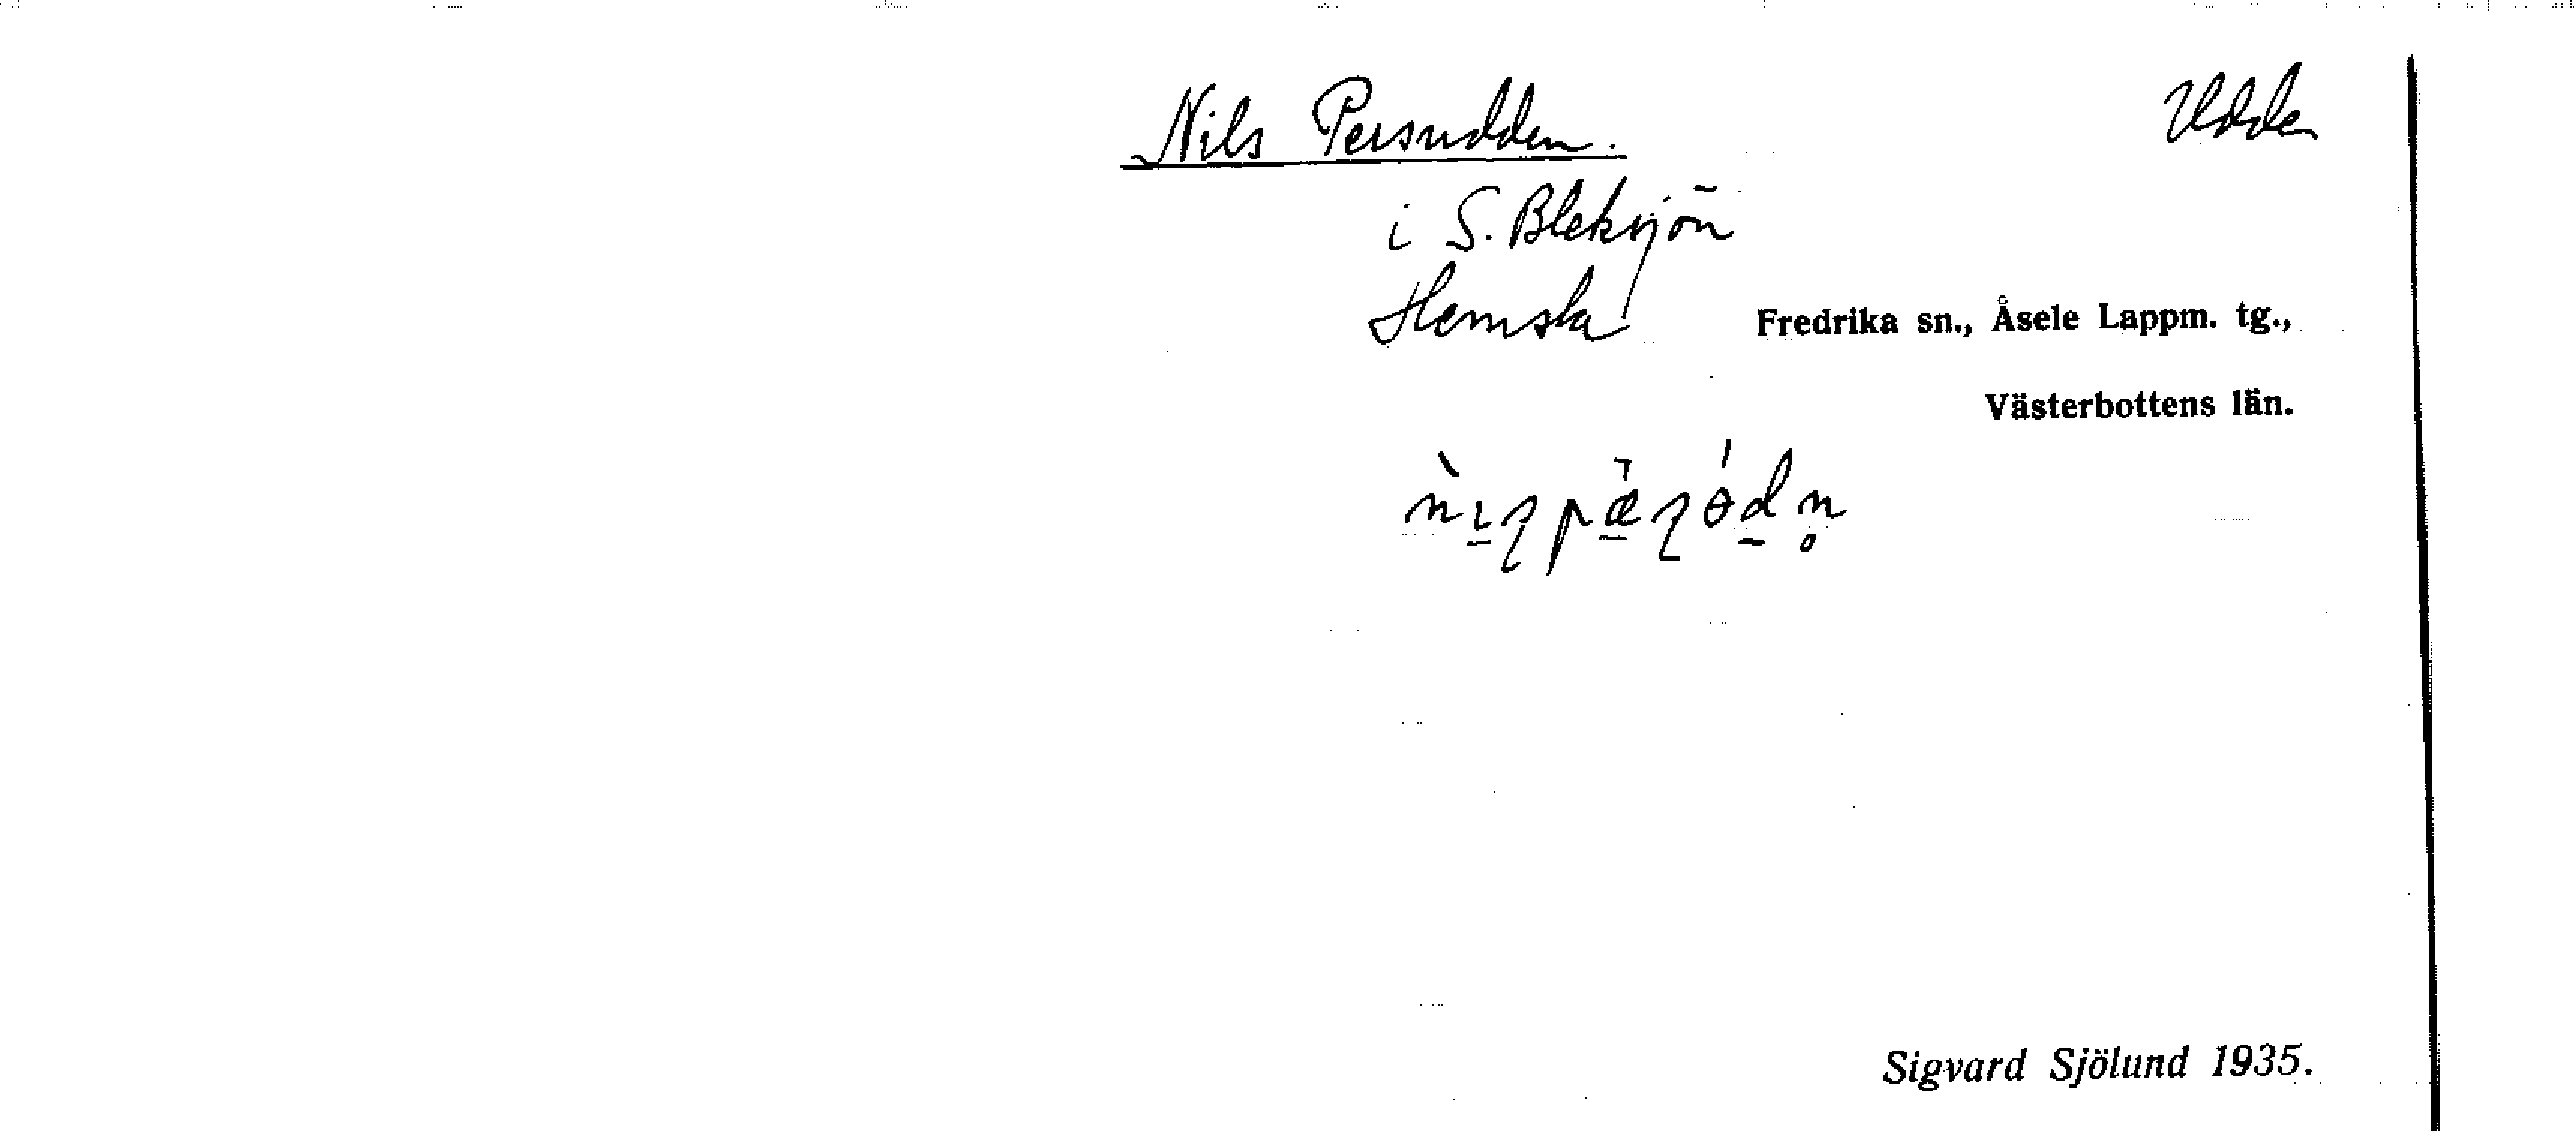 Nils Persudden. Udde
i S. Bleksjön
Hemsla Fredrika sn., Åsele Lappm. tg.,
Västerbottens län.
Sigvard Sjölund 1935.